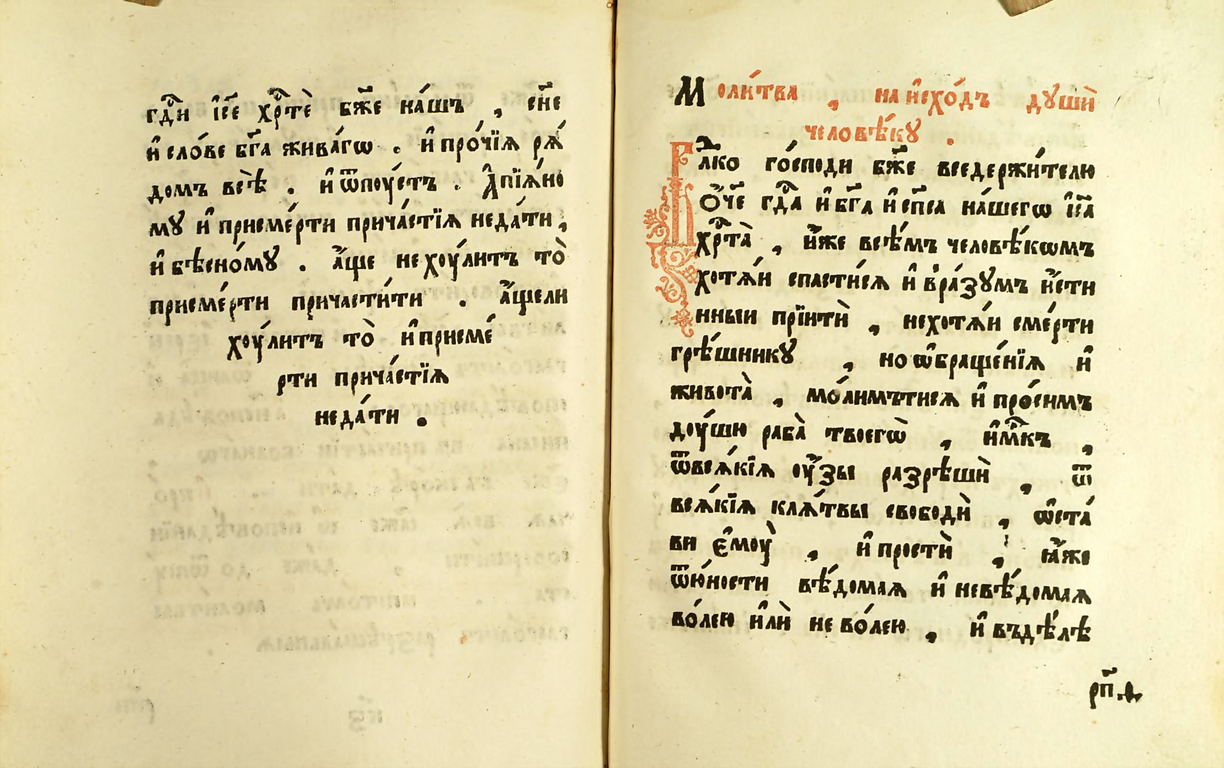 гдⷭ҇и і҆с҃е хрⷭ҇тѐ бж҃е на́шъ , сн҃е
и҆ сло́ве бг҃а жива́гѡ . и҆ про́чїѧ рѧ́
домъ всѣ̀ . и҆ ѿпоу́стъ . а҆ пїѧ́но
мꙋ и҆ присме́рти прича́стїѧ неда́ти ,
и҆ бѣсно́мꙋ . а҆́ще не хоу́литъ то̀
присме́рти причасти́ти . а҆́щели
хоу́литъ то̀ и҆ присме́
рти прича́стїѧ
неда́ти .
Моли́тва , на и҆схо́дъ дꙋшѝ
человѣ́кꙋ .
Влⷣко го́споди бж҃е вседержи́телю
Ѻ҆́ч҃е гдⷭ҇а и҆ бг҃а и҆ сп҃са на́шегѡ і҆с҃а
хрⷭ҇та̀ , и҆́же всѣ́мъ человѣ́кѡмъ
хотѧ́и спасти́сѧ и҆ в̾ра́зꙋмъ и҆́сти
нныи прїитѝ , нехотѧ́и сме́рти
грѣ́шникꙋ , но ѡ҆браще́нїѧ и҆
живота̀ , мо́лимътисѧ и҆ про́симъ
доу́шю раба̀ твоегѡ̀ , и҆́м̾къ ,
ѿвсѧ́кїѧ оу҆́зы разрѣшѝ , ѿ
всѧ́кїѧ клѧ́твы свободѝ , ѡ҆ста́
ви є҆моу̀ , и҆ простѝ , ꙗ҆́же
ѿю́ности вѣ́домаѧ и҆ невѣ́домаѧ
во́лею и҆лѝ не во́лею , и҆ въдѣ́лѣ
рп҃.ѳ